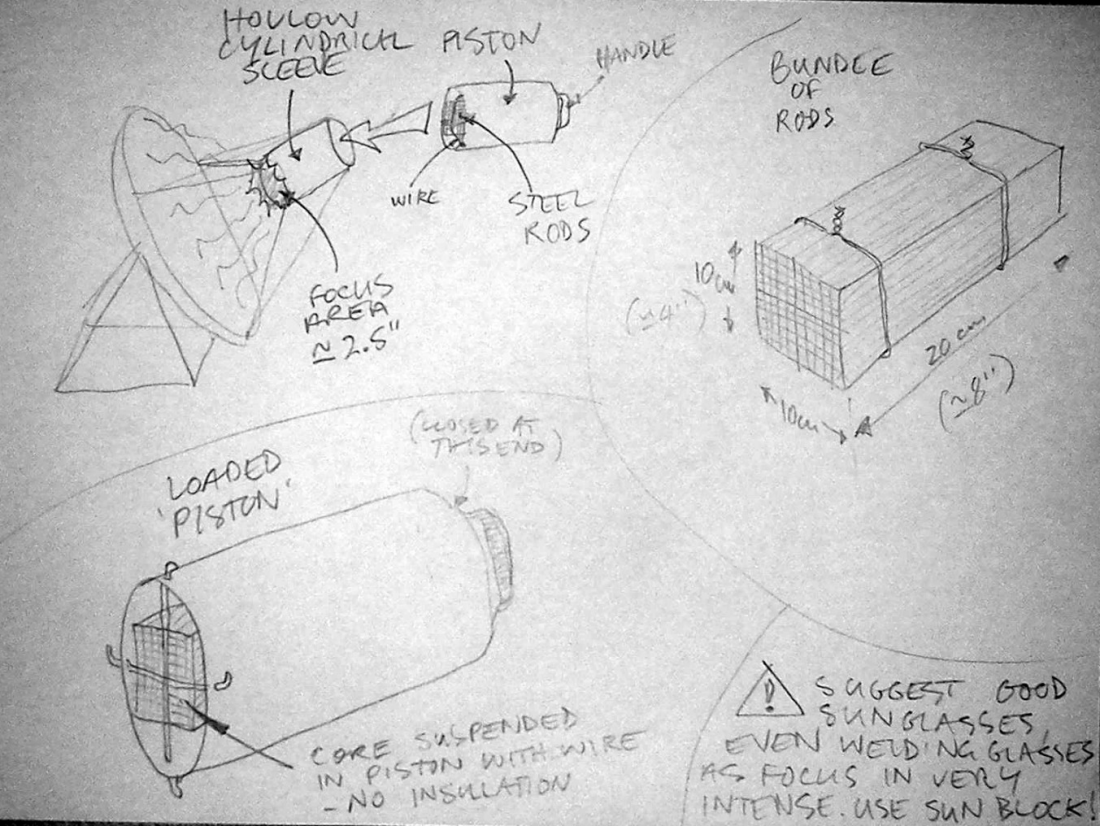 HOLLOW
CYLINDRICAL
SLEEVE
PISTON
HANDLE
WIRE
STEEL
RODS
FOCUS
AREA
≃ 2.5"
BUNDLE
OF
RODS
10cm
(≃4")
10cm
20 cm
(≃8")
'LOADED
PISTON'
(CLOSED AT
THIS END)
CORE SUSPENDED
IN PISTON WITH WIRE
- NO INSULATION
! SUGGEST GOOD
SUNGLASSES,
EVEN WELDING GLASSES
AS FOCUS IN VERY
INTENSE. USE SUN BLOCK!